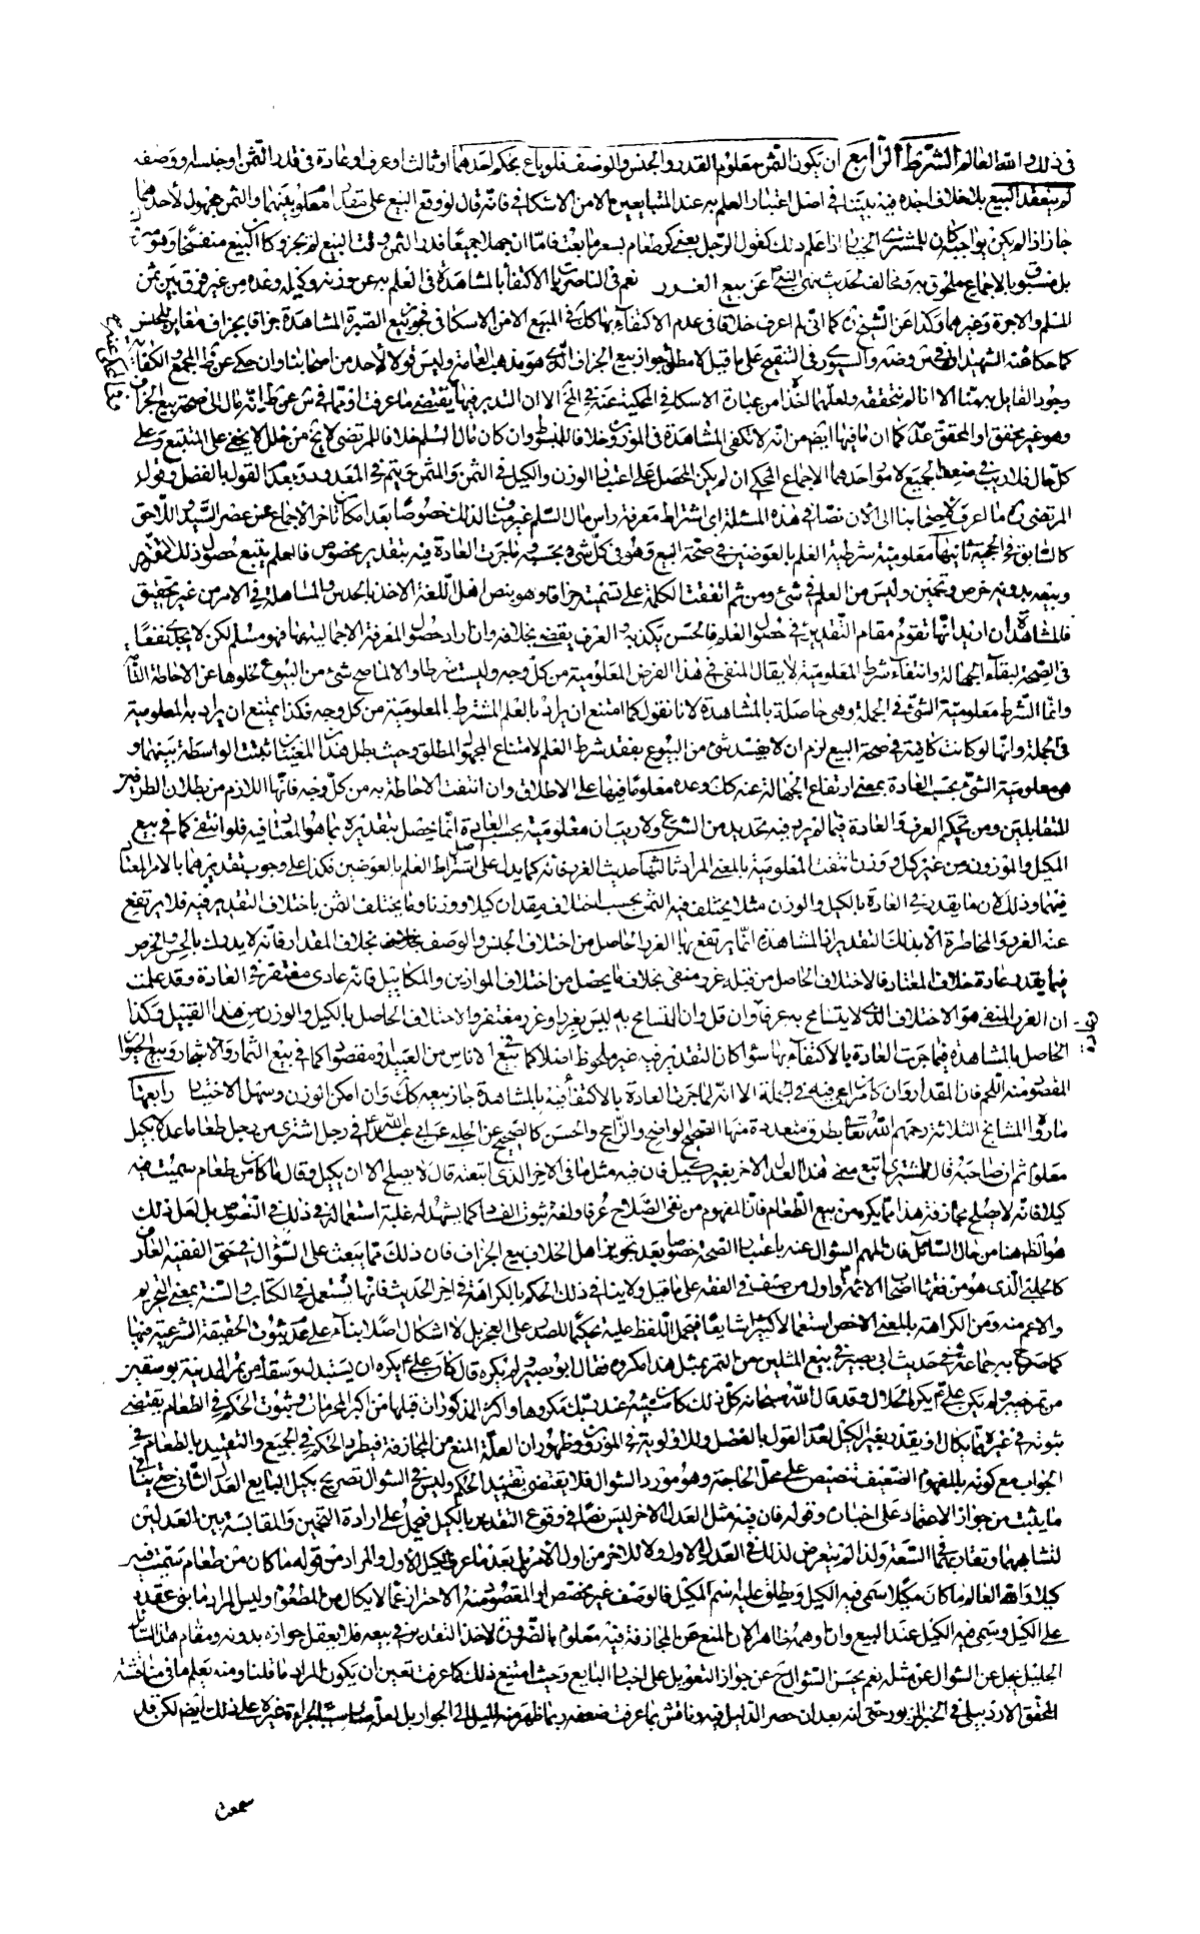 في ذلك والله العالم الشرط الرابع ان يكون الثمن معلوم القدر والجنس والوصف فلو باع بحكم احدهما او ثالث او عرف او عادة في قدر الثمن او جنسه او وصفه
لم ينعقد البيع بلا خلاف اجده فيه بيننا في اصل اعتبار العلم به عند المتبايعين الا من الاسكافي فانه قال لو وقع البيع على مقدار معلوم بينهما والثمن مجهول لأحدهما
جاز اذا لم يكن يواجبه كان للمشتري الخيار اذا علم ذلك كقول الرجل بعني كر طعام بسعر ما بعت فاما ان جهلا جميعا قدر الثمن وقت البيع لم يجز وكان البيع منفسخا وهو
بل مسبوق بالاجماع ملحوق به ومخالف لحديث نهى النبي عن بيع الغرر نعم في الناصريات الاكتفاء بالمشاهدة في العلم به عن وزنه وكيله وعده من غير فرق بين ثمن
السلم والاجرة وغيرهما وكذا عن الشيخ كما اني لم اعرف خلافا في عدم الاكتفاء بها كذلك في المبيع الا من الاسكافي فجوز بيع الصبرة المشاهدة جزافا بجزاف مغاير للجنس
كما حكاه عنه الشهيدان في س وضه والسيوري في التنقيح على ما قيل لا مطلق جواز بيع الجزاف الذي هو مذهب العامة وليس قولا لأحد من اصحابنا وان حكي عن ظ المجمع والكفاية
وجود القايل به منا الا انا لم نتحققه ولعلهما اخذا من عبارة الاسكافي المحكية عنه في الخ الا ان التدبر فيها يقتضي ما عرفت او مما في س عن ط انه مال الى صحة بيع الجزاف
وهو غير محقق او المحقق عدمه كما ان ما فيها ايضا من انه لا تكفي المشاهدة في الموزون خلافا للمبسوط وان كان مال السلم خلافا للمرتضى لا يخ من خلل لا يخفى على المتتبع وعلى
كل حال فلا ريب في ضعف الجميع لا لمواحدهما الاجماع المحكي ان لم يكن المحصل على اعتبار الوزن والكيل في الثمن والمثمن ويتم في المعدود بعدم القول بالفصل وقول
المرتضى ره ما اعرف لأصحابنا الى الآن نصا في هذه المسئلة اى اشتراط معرفة راس مال السلم غير مناف لذلك خصوصا بعد امكان تاخر الاجماع عن عصر السيد واللاحق
كالسابق في الحجية ثانيها معلومية شرطية العلم بالعوضين في صحة البيع وهو في كل شيء بحسبه فما جرت العادة فيه بتقدير مخصوص فالعلم يتبع حصول ذلك التقدير
وبيعه بدونه خرص وتخمين وليس من العلم في شئ ومن ثم اتفقت الكلمة على تسميته جزافا وهو بنص اهل اللغة الاخذ بالحدس والمساهلة في الامر من غير تحقيق
فالمشاهدة ان اريد انها تقوم مقام التقدير في حصول العلم فالحس يكذبه والعرف يقضي بخلافه وان اراد حصول المعرفة الاجمالية بها فهو مسلم لكن لا يجدي نفعا
في الصحة لبقاء الجهالة وانتفاء شرط المعلومية لا يقال المنفي في هذا الفرض المعلومية من كل وجه وليست شرطا والا لما صح شئ من البيوع لخلوها عن الاحاطة التامة
وانما الشرط معلومية الشئ في الجملة وهي حاصلة بالمشاهدة لانا نقول كما امتنع ان يراد بالعلم المشترط المعلومية من كل وجه فكذا يمتنع ان يراد به المعلومية
في الجملة وانها لو كانت كافية في صحة البيع لزم ان لا يفسد شئ من البيوع بفقد شرط العلم لامتناع المجهول المطلق وحيث بطل هذان المعنيان ثبتت الواسطة بينهما و
هي معلومية الشئ بحسب العادة بمعنى ارتفاع الجهالة عنه كذلك وعده معلوما فيها على الاطلاق وان انتفت الاحاطة به من كل وجه فانها اللازم من بطلان الطرفين
المتقابلين ومن تحكيم العرف والعادة فيما لم يرد فيه تحديد من الشرع ولا ريب ان معلوميته بحسب العادة انما يحصل بتقديره بما هو المعتاد فيه فلو انتفى كما في بيع
المكيل والموزون من غير كيل ووزن انتفت المعلومية بالمعنى المراد ثالثها حديث الغرر فانه كما يدل على اصل اشتراط العلم بالعوضين فكذا على وجوب تقديرهما بالامر المعتاد
فيهما وذلك لان ما يقدر في العادة بالكيل والوزن مثلا يختلف فيه الثمن بحسب اختلاف مقداره كيلا ووزنا وما يختلف الثمن باختلاف التقدير فيه فلا يرتفع
عنه الغرر والمخاطرة الا بذلك التقدير اذ المشاهدة انما يرتفع بها الغرر الحاصل من اختلاف الجنس والوصف بخلاف المقدار فانه لا يدرك بالحس والخرص
فيما يقدر عادة خلاف المعتاد فالاختلاف الحاصل من قبله غرر منفي بخلاف ما يحصل من اختلاف الموازين والمكاييل فانه عادي مغتفر في العادة وقد علمت
ان الغرر المنفي هو الاختلاف الذي لا يتسامح به عرفا وان قل وان المتسامح به ليس بغرر او غرر مغتفر والاختلاف الحاصل بالكيل والوزن من هذا القبيل وكذا
عادة
الحاصل بالمشاهدة فيما جرت العادة بالاكتفاء بها سواء كان التقدير فيه غير ملحوظ اصلا كما في بيع الاناسي من العبيد او مقصودا كما في بيع الثمار والاشجار وبيع الحيوان
المقصود منه اللحم فان المقدار وان كان مرعي فيه في الجملة الا انه لما جرت العادة بالاكتفاء فيه بالمشاهدة جاز بيعه كذلك وان امكن الوزن وسهل الاختبار رابعها
ما رواه المشايخ الثلاثة رحمهم الله تعالى بطرق متعددة منها الصحيح الواضح والراجح والحسن كالصحيح عن الحلبي عن ابي عبد الله ع في رجل اشترى من رجل طعاما عدلا بكيل
معلوم ثم ان صاحبه قال للمشتري ابتع مني هذا العدل الاخر بغير كيل فان فيه مثل ما في الاخر الذي ابتعته قال لا يصلح الا ان يكيل وقال ما كان من طعام سميت فيه
كيلا فانه لا يصلح مجازفة هذا مما يكره من بيع الطعام فان المفهوم من نفي الصلاح عرفا ولغة ثبوت الفساد كما يشهد له غلبة استعماله في ذلك في النصوص بل لعل ذلك
هو الظ هنا من حال السائل فان المهم السؤال عنه باعتبار الصحة خصوصا بعد تجويز اهل الخلاف بيع الجزاف فان ذلك مما يبعث على السؤال في حق الفقيه العارف
كالحلبي الذي هو من فقهاء اصحاب الائمة واول من صنف في الفقه على ما قيل ولا ينافي ذلك الحكم بالكراهة في اخر الحديث فانها تستعمل في الكتاب والسنة بمعنى التحريم
والاعم منه ومن الكراهة بالمعنى الاخص استعمالا كثيرا شايعا فيحمل اللفظ عليه تحكيما للصدر على العجز بل لا اشكال اصلا بناء على عدم ثبوت الحقيقة الشرعية فيها
كما صرح به جماعة وفي حديث ابي بصير في بيع المثلين من التمر بمثل هذا مكروه فقال ابو بصير ولم يكره قال كان علي ع يكره ان يستبدل وسقا من تمر المدينة بوسقين
من تمر خيبر ولم يكن علي ع يكره الحلال وقد قال الله سبحانه كل ذلك كان سيئه عند ربك مكروها واكثر المذكورات قبلها من اكبر المحرمات وثبوت الحكم في الطعام يقتضي
ثبوته في غيره مما يكال او يقدر بغير الكيل لعدم القول بالفصل وللاولوية في الموزون وظهور ان العلة المنع من المجازفة فيطرد الحكم في الجميع والتقييد بالطعام في
الجواب مع كونه بالمفهوم الضعيف تنصيص على محل الحاجة وهو مورد السؤال فلا يقتضي تقييد الحكم وليس في السؤال تصريح بكيل البايع العدل الثاني حتى ينافي
ما يثبت من جواز الاعتماد على اخباره وقوله فان فيه مثل العدل الاخر ليس نصا في وقوع التقدير بالكيل فيحمل على ارادة التخمين والمقايسة بين العدلين
لتشابههما وتقاربهما في السعة ولذا لم يتعرض لذلك في العدل الاول ولا للاخر من اول الامر بل بعد ما عرف كيل الاول والمراد من قوله ما كان من طعام سميت فيه
كيلا والله العالم ما كان مكيلا سمي فيه الكيل ويطلق عليه اسم المكيل فالوصف غير مخصص او المقصود منه الاحتراز عما لا يكال من المطعوم وليس المراد ما بني عقده
على الكيل وسمي فيه الكيل عند البيع وان اوهمه ظاهره لان المنع عن المجازفة فيه معلوم بالضرورة لاخذ التقدير في بيعه فلا يعقل جوازه بدونه ومقام هذا السائل
الجليل يجل عن السؤال عن مثله نعم يحسن السؤال ح عن جواز التعويل على اخبار البايع وحيث امتنع ذلك كما عرفت تعين ان يكون المراد ما قلنا ومنه يعلم ما في مناقشة
المحقق الاردبيلي في الخبر المزبور حتى انه بعد ان حصر الدليل فيه وناقش بما عرفت ضعفه ربما ظهر منه الميل الى الجواز بل لعل صاحب الجراءة غيره على ذلك ايضا لكن قد
سمعت